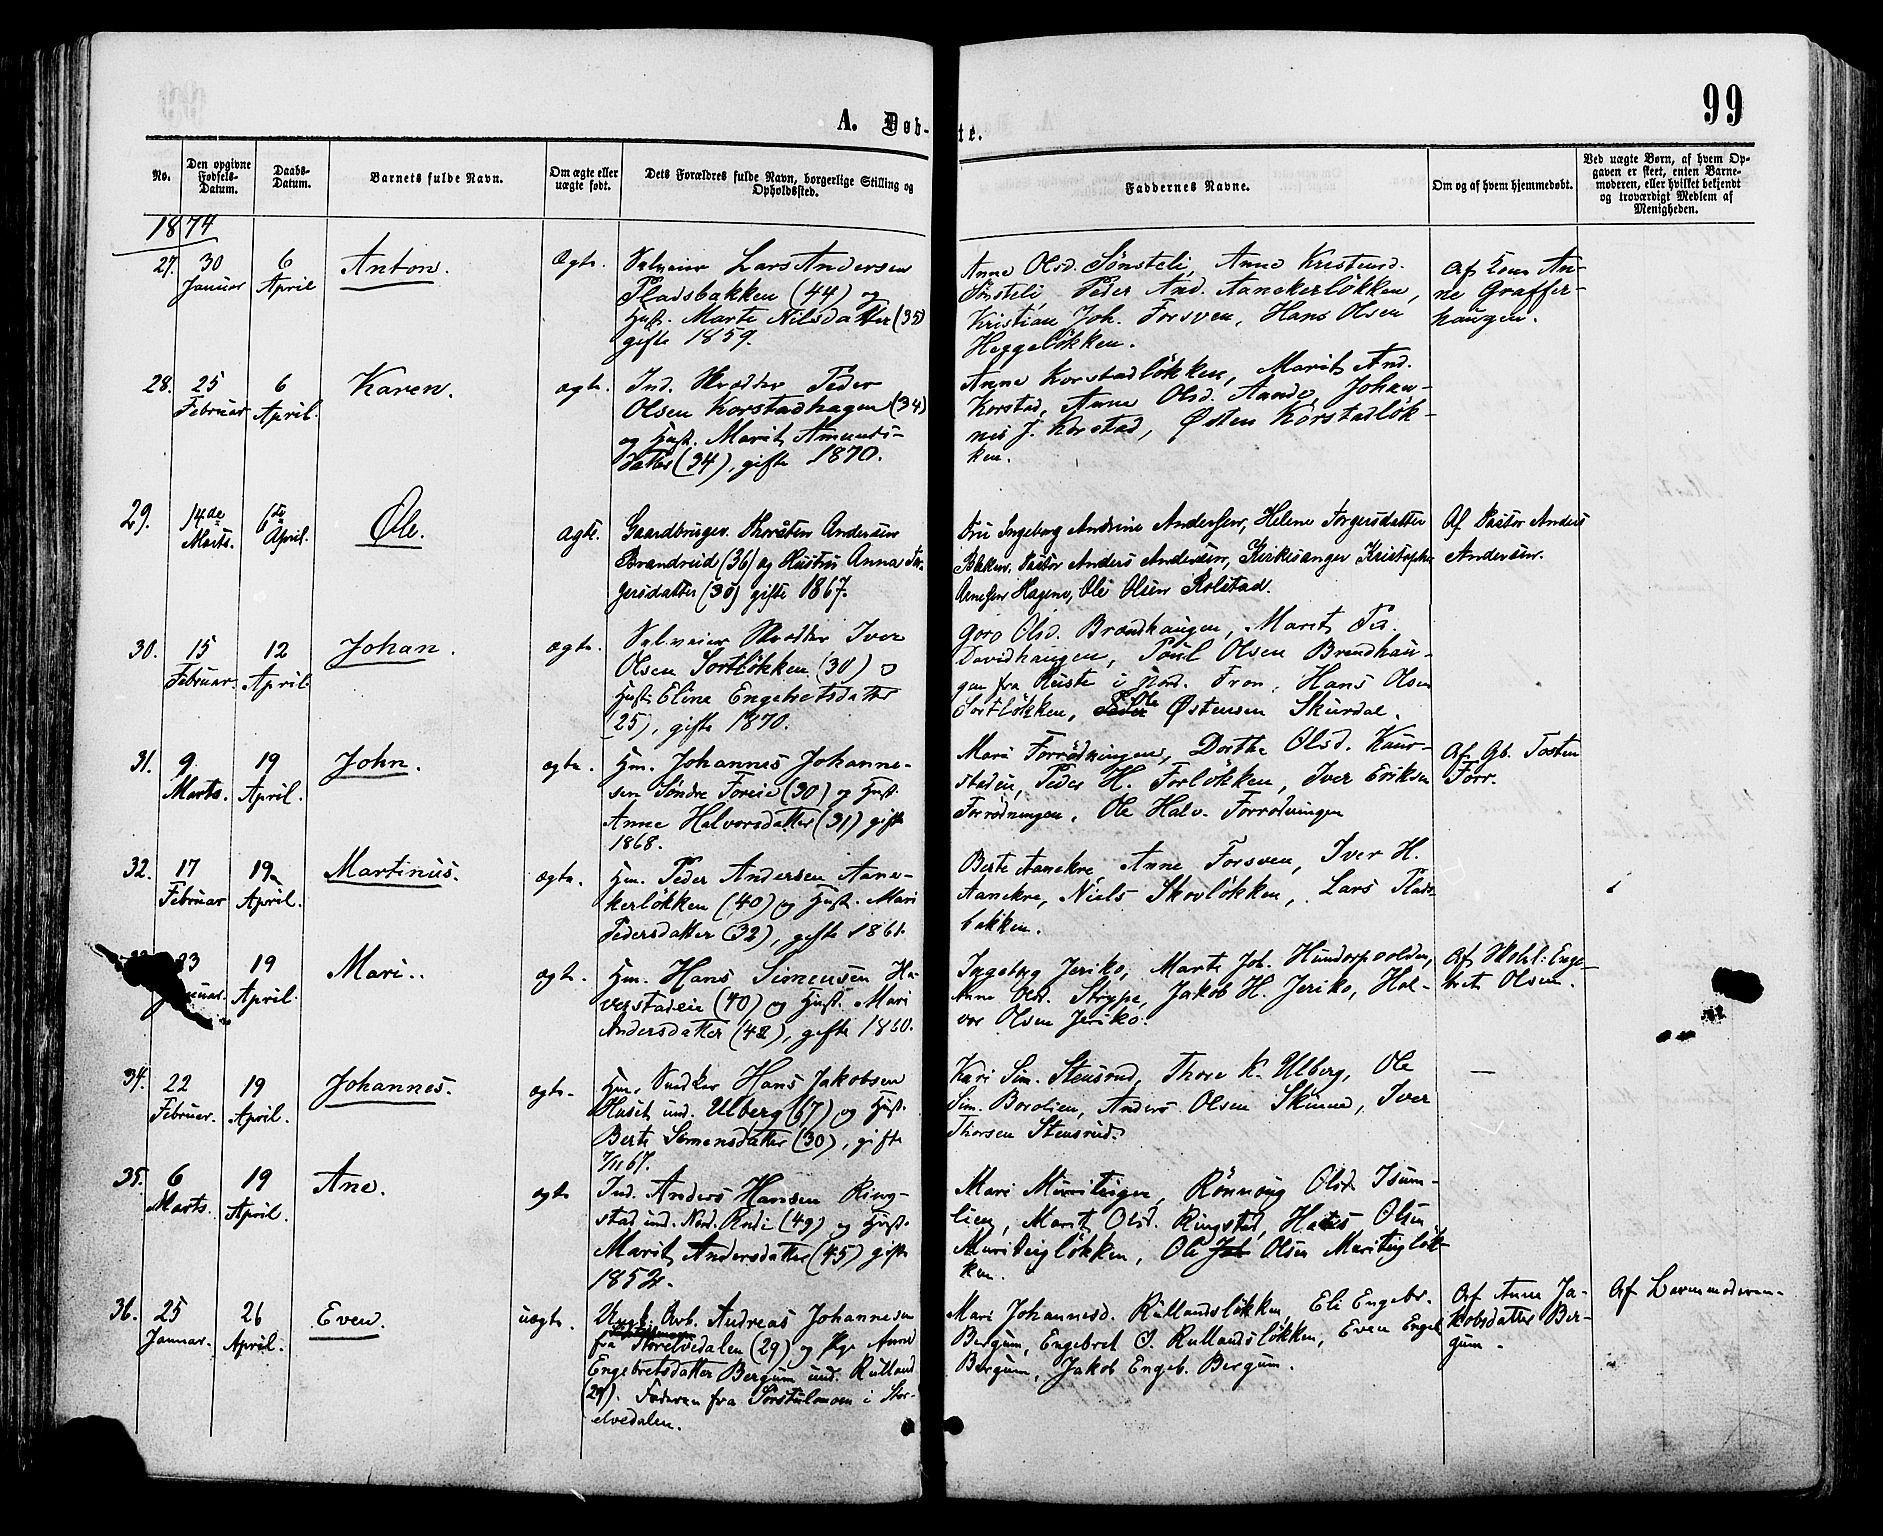 99
A. Døb-
te.
No.
Den opgivne
Fødsels-
Datum.
Daabs-
Datum.
Barnets fulde Navn.
Om ægte eller
uægte født.
Dets Forældres fulde Navn, borgerlige Stilling og
Opholdssted.
Faddernes Navne.
Om og af hvem hjemmedøbt.
Ved uægte Børn, af hvem Op-
gaven er skeet, enten Barne-
moderen, eller hvilket bekjendt
og troværdigt Medlem af
Menigheden.
1874
27.
30
Januar
6
April
Anton.
Ægte.
Selveier Lars Andersen
Pladsbakken (44) og
Hust. Marte Nilsdatter (35)
gifte 1859.
Anne Olsd. Sønsteli, Anne Kristensd.
Sønsteli, Peder And. Aanekerløkken,
Kristian Joh. Forsven, Hans Olsen
Heggeløkken.
Af Anne
ne Graffer-
haugen.
28.
25
Februar
6
April.
Karen.
ægte.
Ind. Skrædder Peder
Olsen Korstadhagen (34)
og Hust. Marit Amunds-
datter (34), gifte 1870.
Anne Korstadløkken, Marit And.
Korstad, Anne Olsd. Aande, Johan-
nes J. Korstad, Østen Korstadløk-
ken.
29.
14de
Marts.
6te
April.
Ole.
ægte.
Gaardbruger Thorsten Andersen
Brandrud (36) og Hustru Anna Tor-
gersdatter (30) gifte 1867.
Fru Ingeborg Andrine Andersen, Helene Torgersdatter
Bakken, Pastor Anders Andersen, Kirkesanger Kristopher
Arnesen Hagene, Ole Olsen Kolstad.
Af Pastor Anders
Andersen.
30.
15
Februar.
12
April.
Johan.
ægte.
Selveier Skrædder Iver
Olsen Sortløkken (30) og
Hust. Eline Engebretsdatter
(25), gifte 1870.
Goro Olsd. Brændhaugen, Marit Ped.
Davidhaugen, Poul Olsen Brendhau-
gen fra Kuste i Nord. Fron, Hans Olsen
Sortløkken, Peder Ole Østensen Skurdal.
31.
9
Marts.
19
April.
John.
ægte.
Hm. Johannes Johanne-
sen Søndre Foreie (30) og Hust.
Anne Halvorsdatter (31) gifte
1868.
Mari Forrødningen, Dorthe Olsd. Kaur-
stadeie, Peder H. Forløkken, Iver Eriksen
Forrødningen, Ole Halv. Forrødningen
Af Gb. Tosten
Forr.
32.
17
Februar
19
April.
Martinus.
ægte.
Hm. Peder Andersen Aane-
kerløkken (40) og Hust. Mari
Pedersdatter (32), gifte 1861.
Berte Aanekre, Anne Forsven, Iver H.
Aanekre, Niels Skovløkken, Lars Plads-
bakken.
23
Januar.
19
April.
Mari.
ægte.
Hm. Hans Simensen Ha-
verstadeie (40) og Hust. Mari
Andersdatter (42), gifte 1860.
Ingeborg Jeriko, Marte Joh. Hundorpvolden,
Anne Olsd. Strype, Jakob H. Jeriko, Hal-
vor Olsen Jeriko.
Af Skohl: Enge-
bret Olsen.
34.
22
Februar.
19
April.
Johannes.
ægte.
Hm. Snedker Hans Jakobsen
Huset und. Ulberg (67) og Hust.
Berte Simensdatter (30), gifte
7/11 67.
Kari Sim. Stensrud, Thore K. Ulberg, Ole
Sim. Borolien, Anders Olsen Skinne, Iver
Thorsen Stensrud.
—
35.
6
Marts.
19
April.
Ane.
ægte
Ind. Anders Hansen Ring-
stad und. Nord. Rudi (49) og Hust.
Marit Andersdatter (45) gifte
1852.
Mari Murituigen, Rønnoug Olsd. Isum-
lien, Marit Olsd. Ringstad, Hans Olsen
Murituigløkken, Ole Joh Olsen Marituigløk-
ken.
36.
25
Januar.
26
April.
Even.
uægte.
Ungk. Arb. Andreas Johannesen
fra Storelvedalen (29) og Pge Anne
Engebretsdatter Bergum und. Rulland
(29). Faderen fra Sørstulmoen i Stor-
elvedalen.
Mari Johannesd. Rullandsløkken, Eli Engebr.
Bergum, Engebret J. Rullandsløkken, Even Engeb.
Bergum, Jakob Engeb. Bergum.
Af Anne Ja-
kobsdatter Ber-
gum.
Af Barnemoderen.